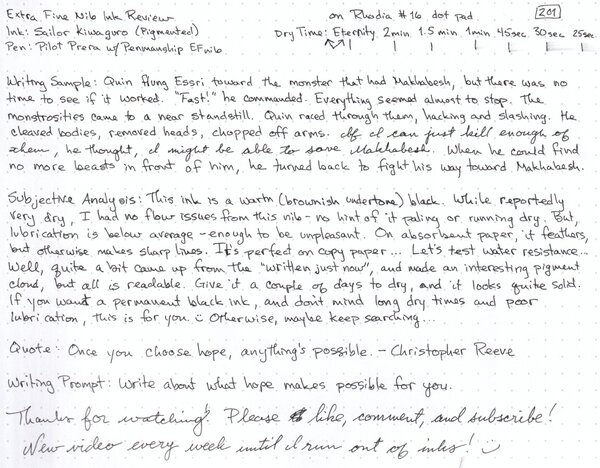 Extra Fine Nib Ink Review on Rhodia #16 dot pad 201
Ink: Sailor Kiwaguro (Pigmented) Dry Time: Eternity 2min 1.5min 1min 45sec 30sec 25sec
Pen: Pilot Prera w/Penmanship EF nib
Writing Sample: Quin flung Essri toward the monster that had Makhabesh, but there was no
time to see if it worked. "Fast!" he commanded. Everything seemed almost to stop. The
monstrosities came to a near standstill. Quin raced through them, hacking and slashing. He
cleaved bodies, removed heads, chopped off arms. If I can just kill enough of
them, he thought, I might be able to save Makhabesh. When he could find
no more beasts in front of him, he turned back to fight his way toward Makhabesh.
Subjective Analysis: This ink is a warm (brownish undertone) black. While reportedly
very dry, I had no flow issues from this nib - no hint of it paling or running dry. But,
lubrication is below average - enough to be unpleasant. On absorbent paper, it feathers,
but otherwise makes sharp lines. It's perfect on copy paper... Let's test water resistance...
Well, quite a bit came up from the "written just now", and made an interesting pigment
cloud, but all is readable. Give it a couple of days to dry, and it looks quite solid.
If you want a permanent black ink, and don't mind long dry times and poor
lubrication, this is for you. Otherwise, maybe keep searching...
Quote: Once you choose hope, anything's possible. - Christopher Reeve
Writing Prompt: Write about what hope makes possible for you.
Thanks for watching! Please like, comment, and subscribe!
New video every week until I run out of inks!